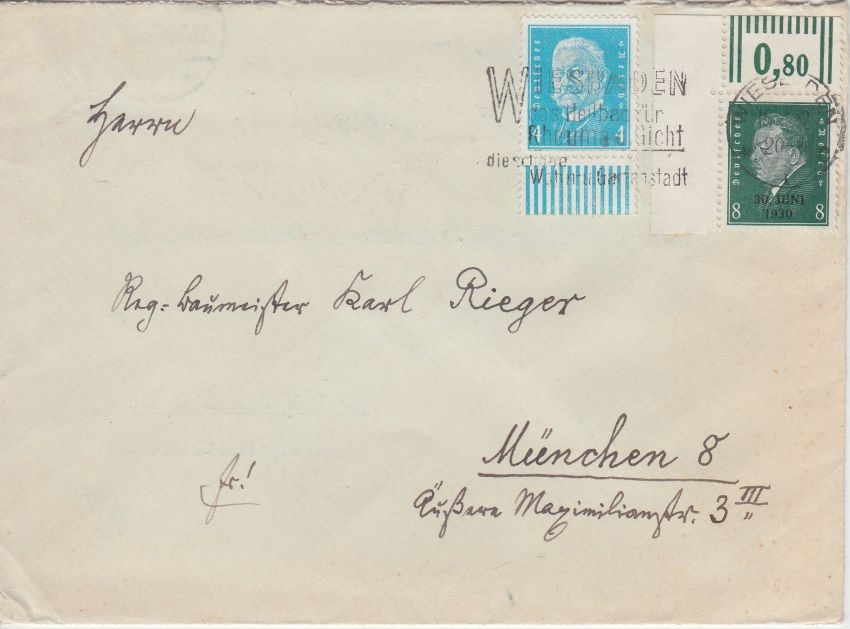 Deutsches Reich
4 4
WIESBADEN
das Heilbad für
Rheuma u. Gicht
die schöne
Wohn u. Gartenstadt
0,80
WIESBADEN
20
Deutsches Reich
30. JUNI
1930
8 8
Herrn
Reg-Baumeister Karl Rieger
München 8
Äußere Maximilianstr. 3 III
fr!